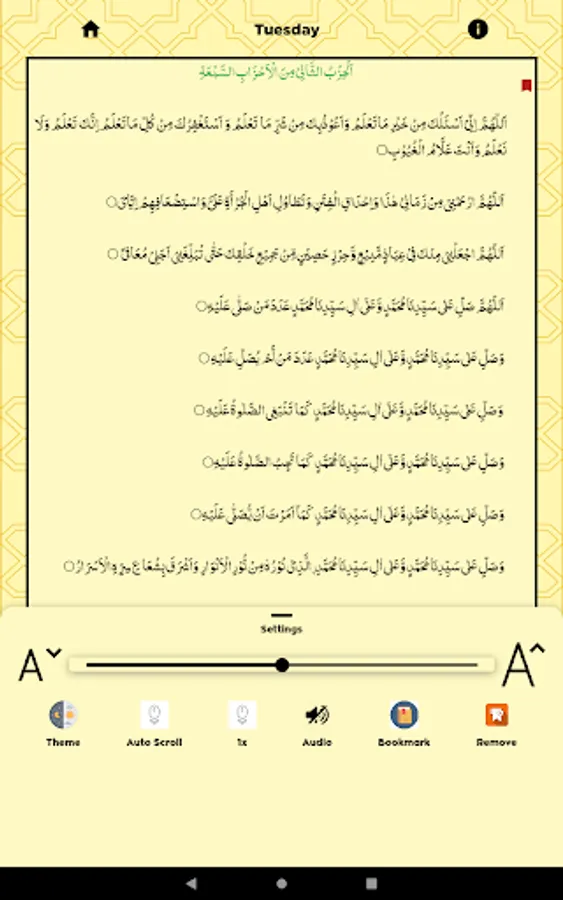 Tuesday
اَلْحِزْبُ الثَّانِيْ مِنَ الْاَحْزَابِ السَّبْعَةِ
اَللّٰهُمَّ اِنِّيْ اَسْئَلُكَ مِنْ خَيْرِ مَا تَعْلَمُ وَاَعُوْذُبِكَ مِنْ شَرِّ مَا تَعْلَمُ وَ اَسْتَغْفِرُكَ مِنْ كُلِّ مَا تَعْلَمُ اِنَّكَ تَعْلَمُ وَلَا
نَعْلَمُ وَاَنْتَ عَلَّامُ الْغُيُوْبِ○
اَللّٰهُمَّ ارْحَمْنِيْ مِنْ زَمَانِيْ هٰذَا وَاِحْدَاقِ الْفِتَنِ وَتَطَاوُلِ اَهْلِ الْجُرْأَةِ عَلَيَّ وَاسْتِضْعَافِهِمْ اِيَّايَ○
اَللّٰهُمَّ اجْعَلْنِيْ مِنْكَ فِيْ عِيَاذٍ مَّنِيْعٍ وَّحِرْزٍ حَصِيْنٍ مِّنْ جَمِيْعِ خَلْقِكَ حَتّٰى تُبَلِّغَنِيْ اَجَلِيْ مُعَافًى○
اَللّٰهُمَّ صَلِّ عَلٰى سَيِّدِنَا مُحَمَّدٍ وَّعَلٰى اٰلِ سَيِّدِنَا مُحَمَّدٍ عَدَدَ مَنْ صَلّٰى عَلَيْهِ○
وَصَلِّ عَلٰى سَيِّدِنَا مُحَمَّدٍ وَّعَلٰى اٰلِ سَيِّدِنَا مُحَمَّدٍ عَدَدَ مَنْ لَّمْ يُصَلِّ عَلَيْهِ○
وَصَلِّ عَلٰى سَيِّدِنَا مُحَمَّدٍ وَّعَلٰى اٰلِ سَيِّدِنَا مُحَمَّدٍ كَمَا تَنْبَغِي الصَّلٰوةُ عَلَيْهِ○
وَصَلِّ عَلٰى سَيِّدِنَا مُحَمَّدٍ وَّعَلٰى اٰلِ سَيِّدِنَا مُحَمَّدٍ كَمَا تَجِبُ الصَّلٰوةُ عَلَيْهِ○
وَصَلِّ عَلٰى سَيِّدِنَا مُحَمَّدٍ وَّعَلٰى اٰلِ سَيِّدِنَا مُحَمَّدٍ كَمَا اَمَرْتَ اَنْ يُّصَلّٰى عَلَيْهِ○
وَصَلِّ عَلٰى سَيِّدِنَا مُحَمَّدٍ وَّعَلٰى اٰلِ سَيِّدِنَا مُحَمَّدِ ࣙالَّذِيْ نُوْرُهٗ مِنْ نُّوْرِ الْاَنْوَارِ وَاَشْرَقَ بِشُعَاعِ سِرِّهِ الْاَسْرَارُ○
Settings
A A
Theme Auto Scroll 1x Audio Bookmark Remove